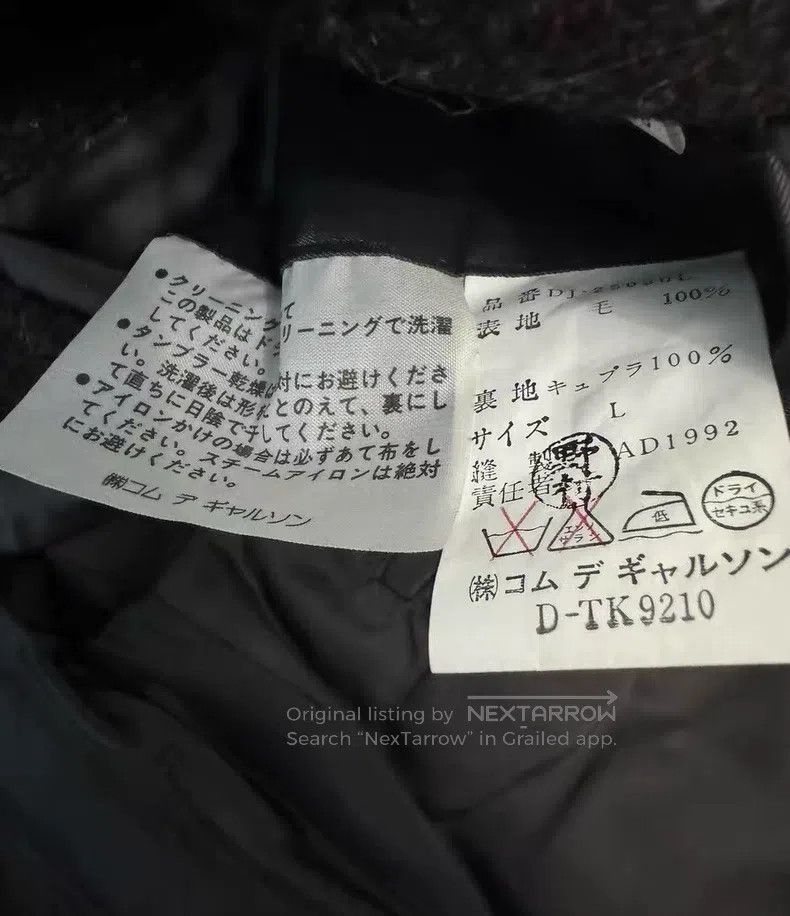 ●クリーニング て
この製品はド リーニングで洗濯
してください。
●タンブラー乾燥 対にお避けくださ
い。洗濯後は形 とのえて、裏にし
て直ちに日陰で干してください。
●アイロンかけの場合は必ずあて布をし
てください。スチームアイロンは絶対
にお避けください。
㈱コム デ ギャルソン
品番
表地 毛 100%
裏地 キュプラ100%
サイズ L
縫製 AD1992
責任者 野村
エンソ
サラシ
低
ドライ
セキユ系
㈱コム デ ギャルソン
D-TK9210
Original listing by NEXTARROW
Search “NexTarrow” in Grailed app.